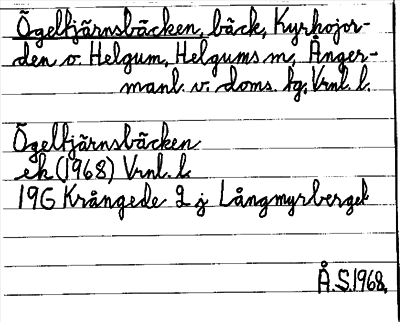 Ögeltjärnsbäcken, bäck, Kyrkojor-
den o. Helgum, Helgums sn, Ånger-
manl. v. doms. hg, Vrnl. l.
Ögeltjärnsbäcken
ek (1968) Vrnl. l.
19G Krångede 2 j Långmyrberget
Å.S. 1968.